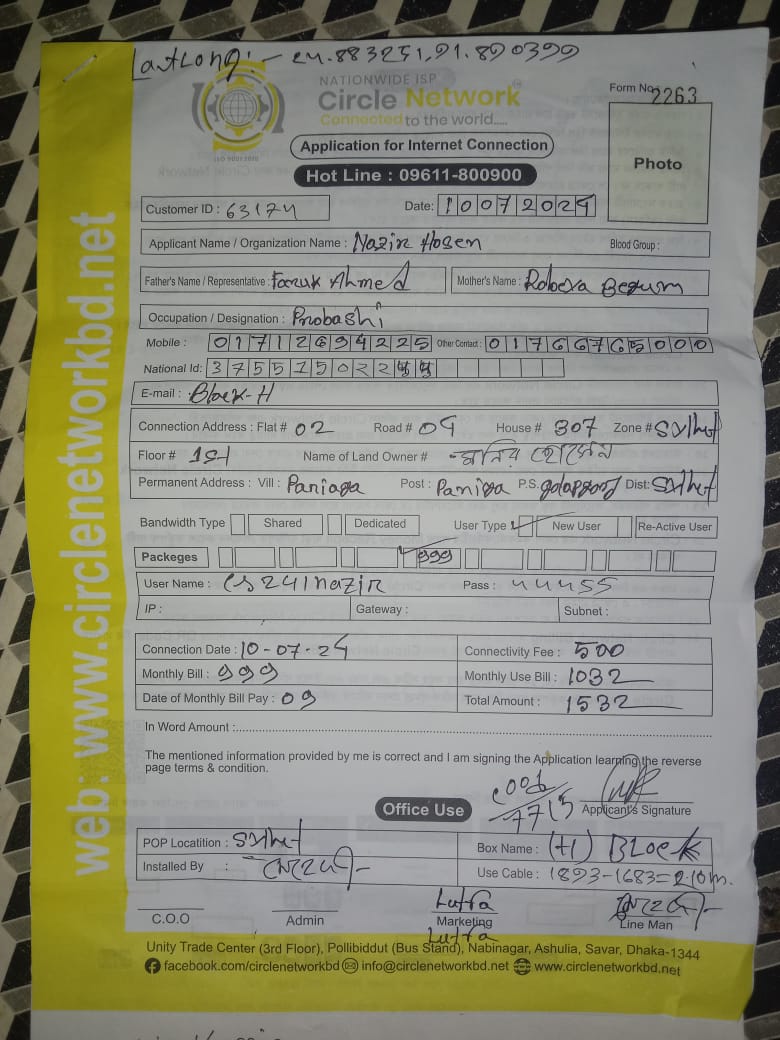 LatLong:- 24.883251,91.890399
NATIONWIDE ISP
Circle Network
Connected to the world.....
ISO 9001:2015
Form No. 2263
Application for Internet Connection
Hot Line : 09611-800900
Photo
Customer ID : 63174
Date: 10072024
Applicant Name / Organization Name : Nazir Hosen
Blood Group :
Father's Name / Representative : Faruk Ahmed
Mother's Name : Begum
Occupation / Designation : Probashi
Mobile : 01712694225 Other Contact : 01766765000
National Id: 37551502244
E-mail : Block-H
Connection Address : Flat # 02 Road # 09 House # 307 Zone # Sylhet
Floor # 1st Name of Land Owner # মনির হোসেন
Permanent Address : Vill : Post : P.S. Dist: Sylhet
Bandwidth Type Shared Dedicated User Type ✓ New User Re-Active User
Packeges ✓ 999
User Name : cs241nazir Pass : 44455
IP : Gateway : Subnet :
Connection Date : 10-07-24 Connectivity Fee : 500
Monthly Bill : 999 Monthly Use Bill : 1032
Date of Monthly Bill Pay : 09 Total Amount : 1532
In Word Amount :
The mentioned information provided by me is correct and I am signing the Application learning the reverse
page terms & condition.
7715
Applicant's Signature
Office Use
POP Locatition : Sylhet Box Name : (H) Block
Installed By : Use Cable : 1893-1683=210m.
Lutfa
C.O.O Admin Marketing Line Man
Lutfa
Unity Trade Center (3rd Floor), Pollibiddut (Bus Stand), Nabinagar, Ashulia, Savar, Dhaka-1344
facebook.com/circlenetworkbd info@circlenetworkbd.net www.circlenetworkbd.net
web: www.circlenetworkbd.net